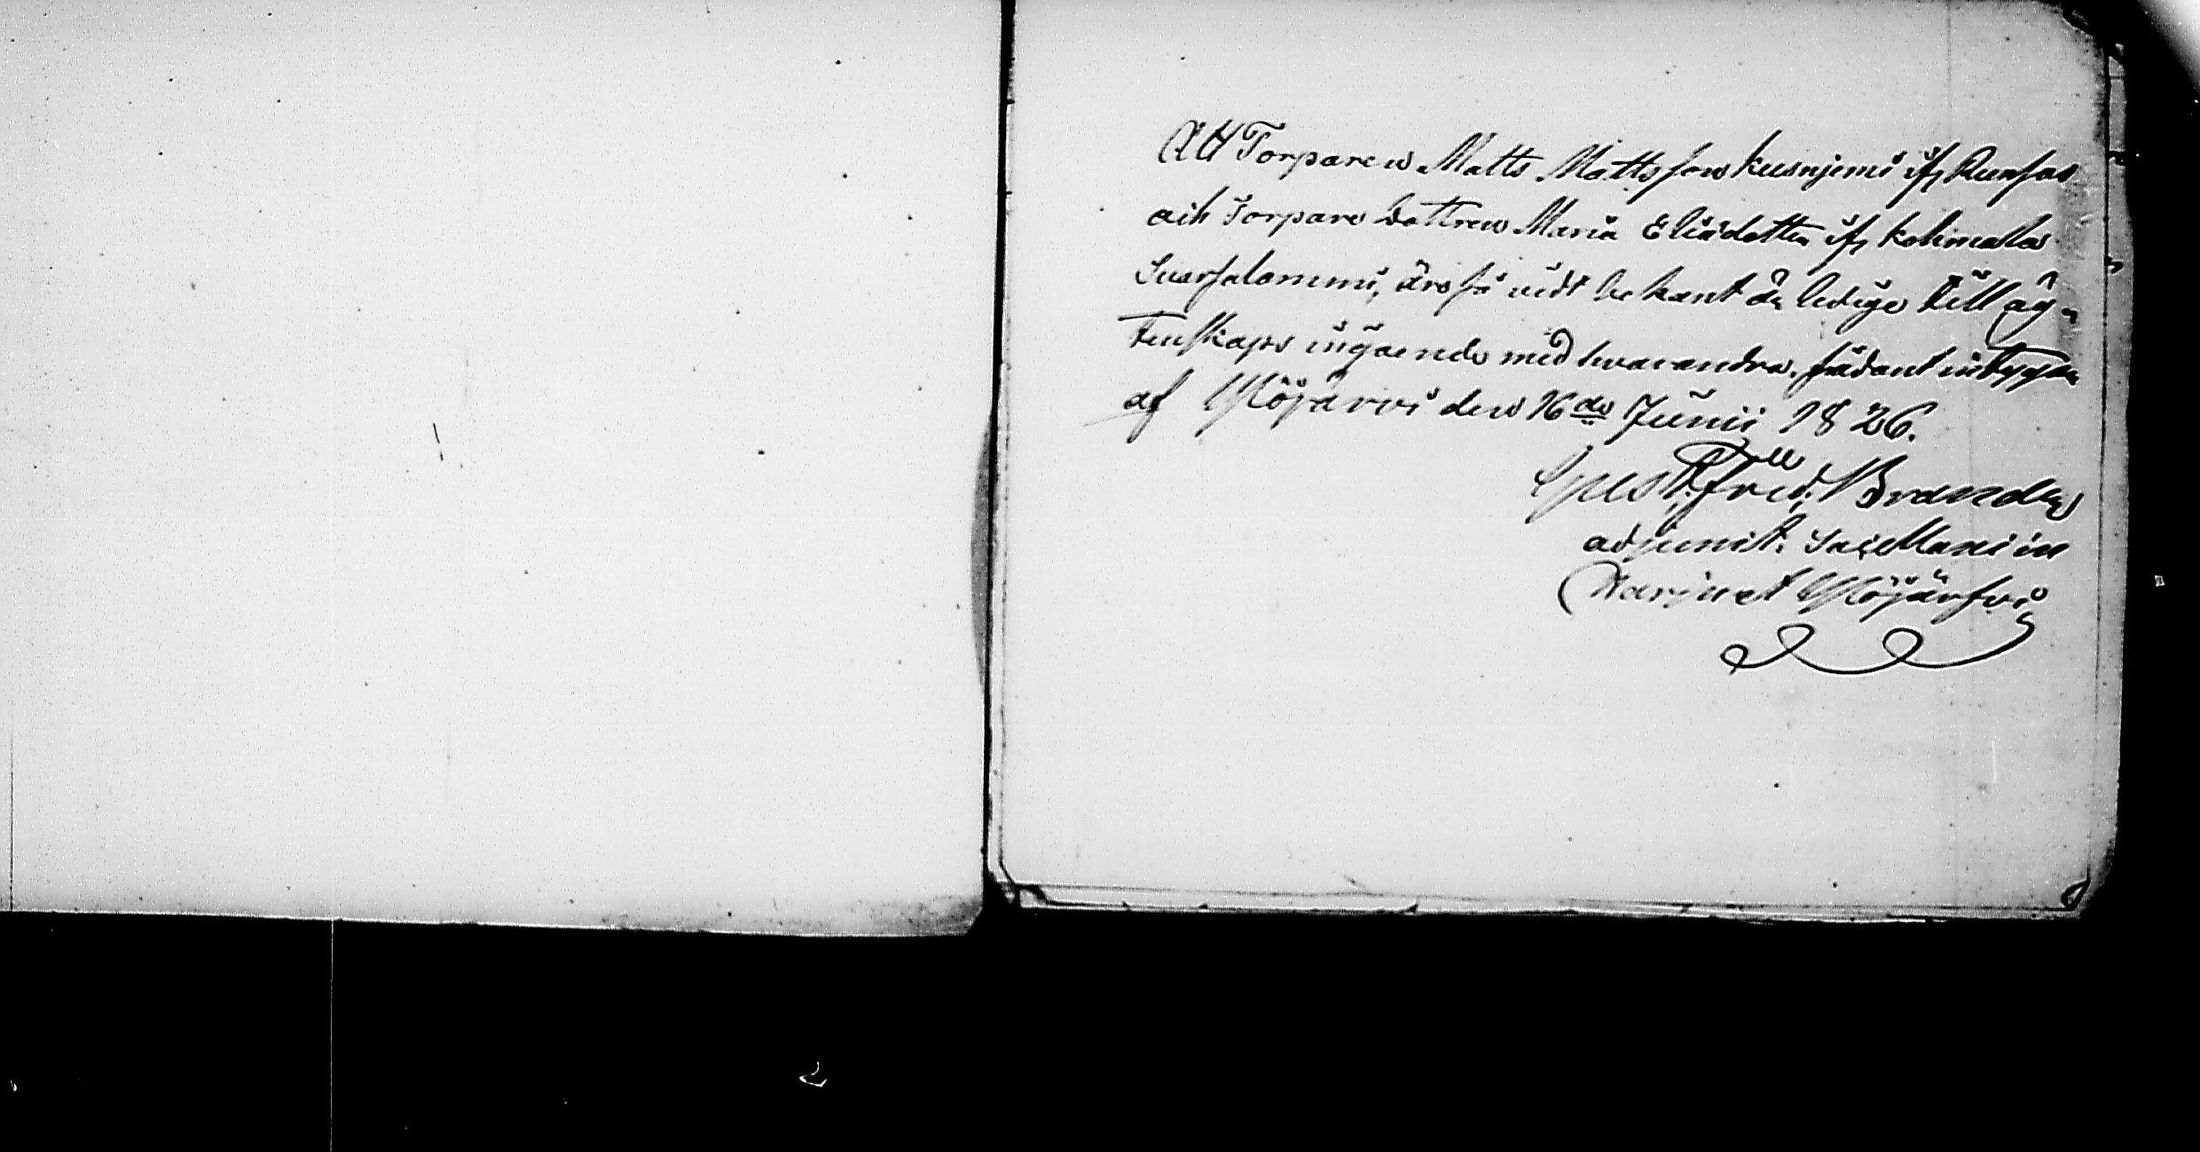 Att Torparen Matts Mattsson Kusnjemi ifr Runsas
och Torpare dottren Maria Eliædotter ifr Kolimalas
Suarsalommi, äro så vidt bekant är ledige till äg-
tenskaps ingående med hvarandra, sådant intygar
af Ylöjärvi den 16de Junii 1826.
Gust. Fred. Brander
adjunct. Sacellani in
Ylöjärfvi